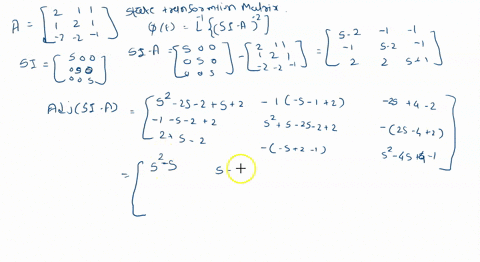 A = [ 2 1 1 ; 1 2 1 ; -2 -2 -1 ]
State transformation Matrix.
φ(t) = L⁻¹ {(SI-A)⁻²}
SI = [ s 0 0 ; 0 s 0 ; 0 0 s ]
SI-A = [ s 0 0 ; 0 s 0 ; 0 0 s ] - [ 2 1 1 ; 1 2 1 ; -2 -2 -1 ] = [ s-2 -1 -1 ; -1 s-2 -1 ; 2 2 s+1 ]
Adj(SI-A) = [ s²-2s-2+s+2 -1(-s-1+2) -2s+4-2 ; -1-s-2+2 s²+s-2s-2+2 -(2s-4+2) ; 2+s-2 -(-s+2-1) s²-4s+4-1 ]
= [ s²-s s-+